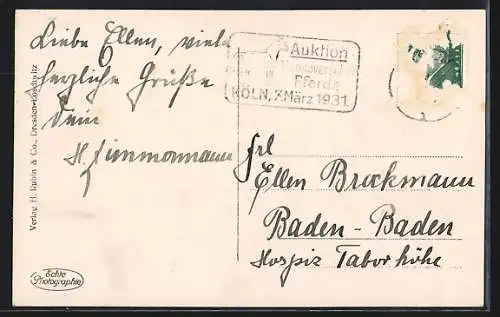 Liebe Ellen, viele
herzliche Grüße
Dein
H. Zimmermann
Auktion
Pferde
KÖLN, 7.März 1931.
Frl
Ellen Brockmann
Baden-Baden
Hospiz Taborhöhe
Verlag H. & Co., Dresden-Loschwitz
Echte
Photographie